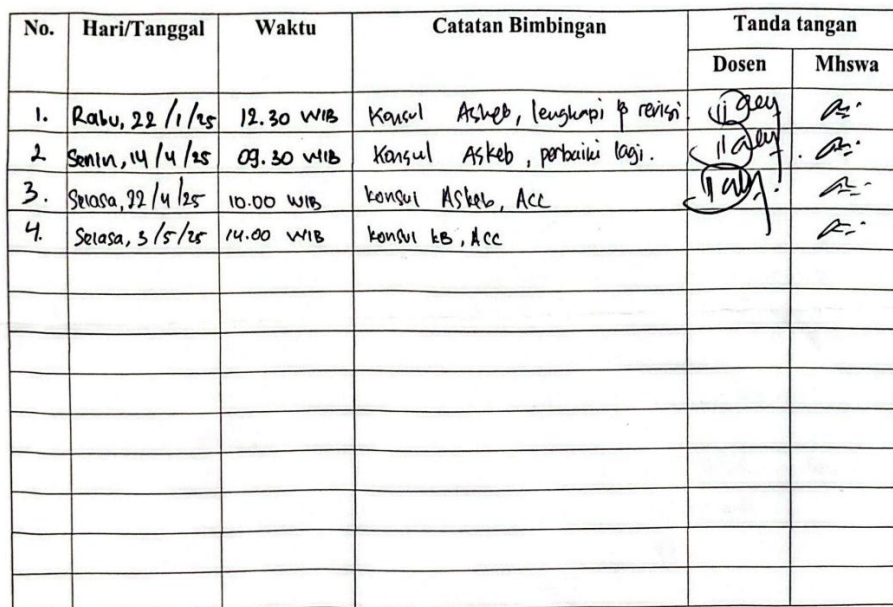 No. Hari/Tanggal Waktu Catatan Bimbingan Tanda tangan
Dosen Mhswa
1. Rabu, 22/1/25 12.30 WIB Konsul Askeb, lengkapi & revisi.
2 Senin, 14/4/25 09.30 WIB Konsul Askeb, perbaiki lagi.
3. Selasa, 22/4/25 10.00 WIB konsul Askeb, Acc
4. Selasa, 3/5/25 14.00 WIB konsul KB, Acc